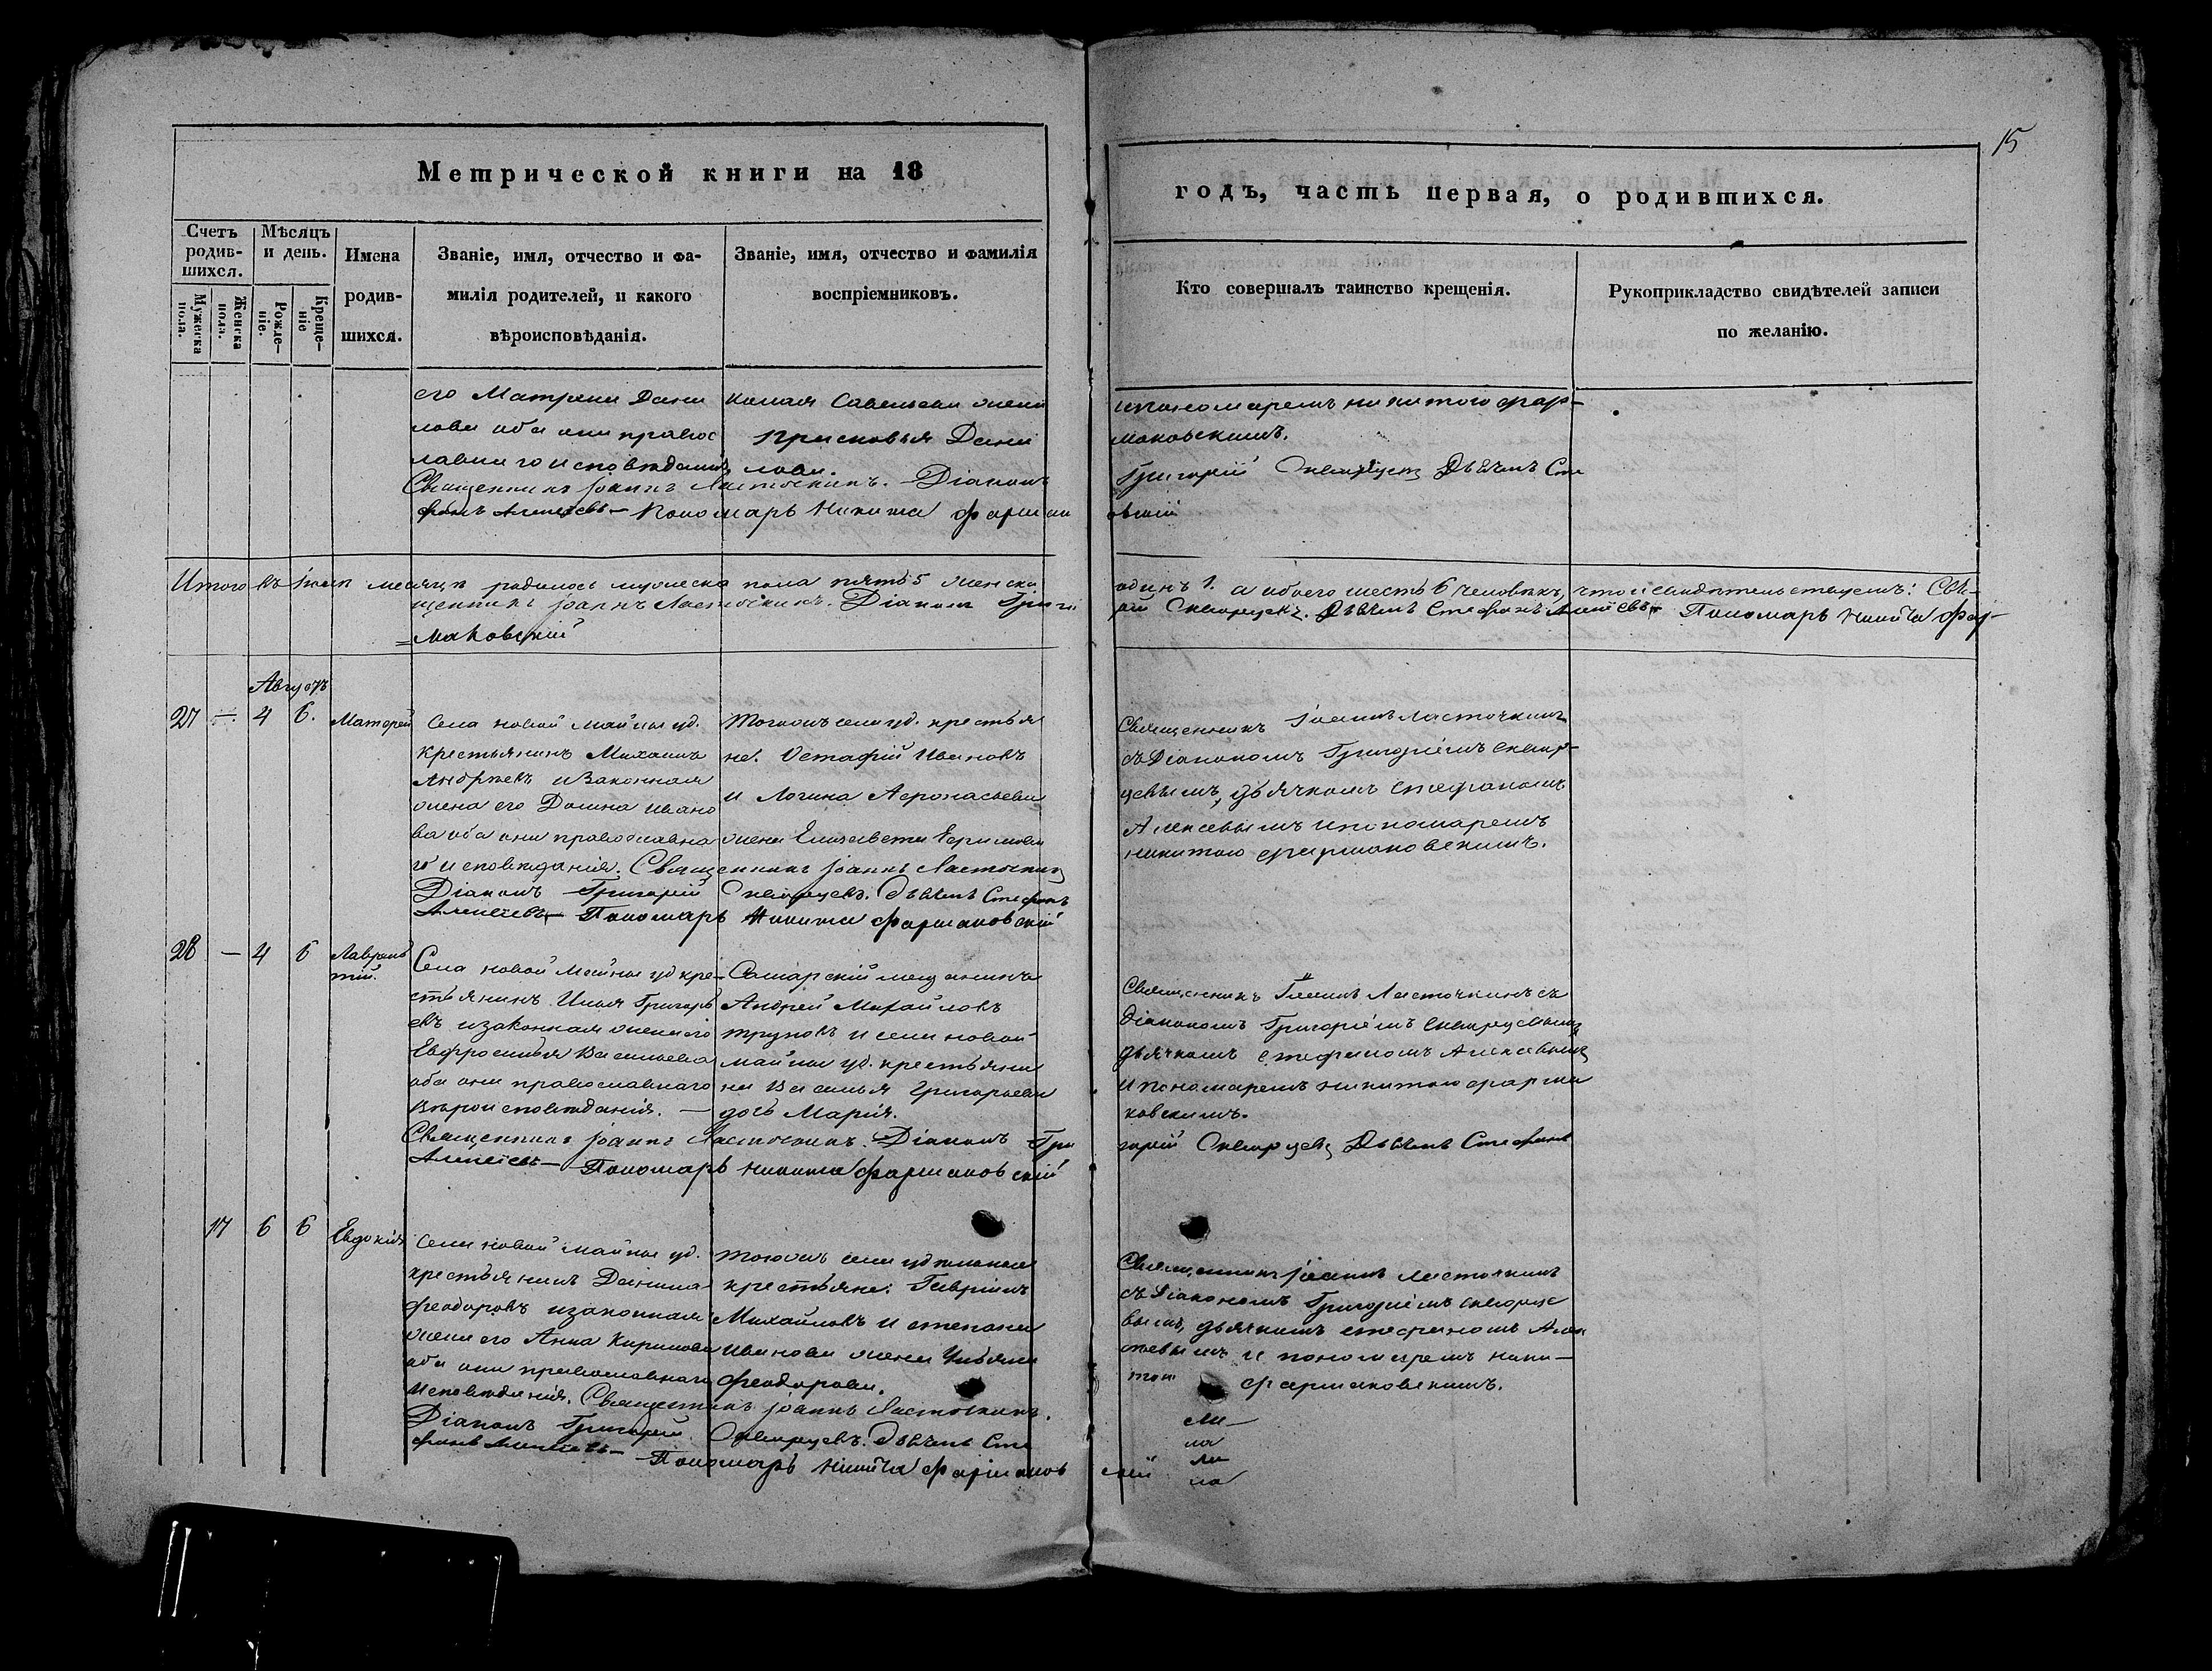 15
Метрической книги на 18
годъ, часть первая, о родившихся.
Счетъ родив-шихся.
Мѣсяцъ и день.
Имена родив-шихся.
Званіе, имя, отчество и фа-
милія родителей, и какого
вѣроисповѣданія.
Званіе, имя, отчество и фамилія
воспріемниковъ.
Кто совершалъ таинство крещенія.
Рукоприкладство свидѣтелей записи
по желанію.
Мужеска пола.
Женска пола.
Рожде-ніе.
Креще-ніе
его Матрена Дани
лова оба они правос
лавнаго исповѣданія
Савельева жена
Прасковья Дани
лова.
и пономаремъ Никитою Фар-
маковскимъ.
Священникъ Іоаннъ Ласточкинъ. Діаконъ
Григорій Скворцевъ Дьячекъ Сте
фанъ Алексѣевъ — Пономарь Никита Фармак
овскій
Итого въ месяцѣ родилось мужеска пола пять 5 женска
одинъ 1. а обоего шесть 6 человѣкъ, что и свидѣтельствуемъ: Свя-
щенникъ Іоаннъ Ласточкинъ. Діаконъ Григо
рій Скворцевъ. Дьячекъ Стефанъ Алексѣевъ Пономарь Никита Фар-
=маковскій
Августъ
27 — 4 6. Матфей
Села новой Майны уд.
крестьянинъ Михаилъ
Андреевъ и законная
жена его Домна Ивано
ва оба они православна
го исповѣданія.
Тогожъ села уд. крестья
не. Остафій Ивановъ
и Логина Афонасьева
жена Елисавета Ефимова
Священникъ Іоаннъ Ласточкинъ
съ Діакономъ Григоріемъ Сквор-
цевымъ, дьячкомъ Стефаномъ
Алексевымъ и пономаремъ
Никитою Фармаковскимъ.
Священникъ Іоаннъ Ласточкинъ
Діаконъ Григорій Скворцевъ. Дьячекъ Стефанъ
Алексѣевъ — Пономарь Никита Фармаковскій
28 — 4 6 Лаврен
тій.
Села новой Майны уд кре-
стьянинъ Илья Григорь
евъ и законная жена его
Евфросинья Васильева
оба они православнаго
вѣроисповѣданія. —
Самарскій мещанинъ
Андрей Михайловъ
Труновъ и села новой
Майны уд. крестьяни
на Василья Григорьева
дочь Марія.
Священникъ Іоаннъ Ласточкинъ съ
діакономъ Григоріемъ Скворцевымъ
дьячкомъ Стефаномъ Алексевымъ
и пономаремъ Никитою Фарма
ковскимъ.
Священникъ Іоаннъ Ласточкинъ. Діаконъ Гри
горій Скворцевъ Дьячекъ Стефанъ
Алексѣевъ — Пономарь Никита Фармаковскій
17 6 6 Евдокія
Села новой Майны уд.
крестьянинъ Данила
Феодоровъ и законная
жена его Анна Кирилова
оба они православнаго
исповѣданія.
Тогожъ села удельные
крестьяне: Гавріилъ
Михайловъ и Степана
Иванова жена Ульяна
Феодорова.
Священникъ Іоаннъ Ласточкинъ
съ Діакономъ Григоріемъ Скворце
вымъ, дьячкомъ Стефаномъ Алек
сѣевымъ и пономаремъ Ники-
тою Фармаковскимъ.
Священникъ Іоаннъ Ласточкинъ.
Діаконъ Григорій Скворцевъ. Дьячекъ Сте
фанъ Алексѣевъ — Пономарь Никита Фармаков
скій